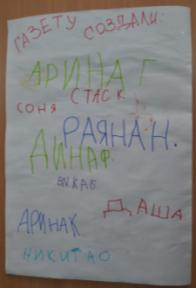 ГАЗЕТУ СОЗДАЛИ:
АРИНА Г
СОНЯ СТАС К
РАЯНА Н.
ДИНА Ф.
ДАША
АРИНА К
НИКИТА О